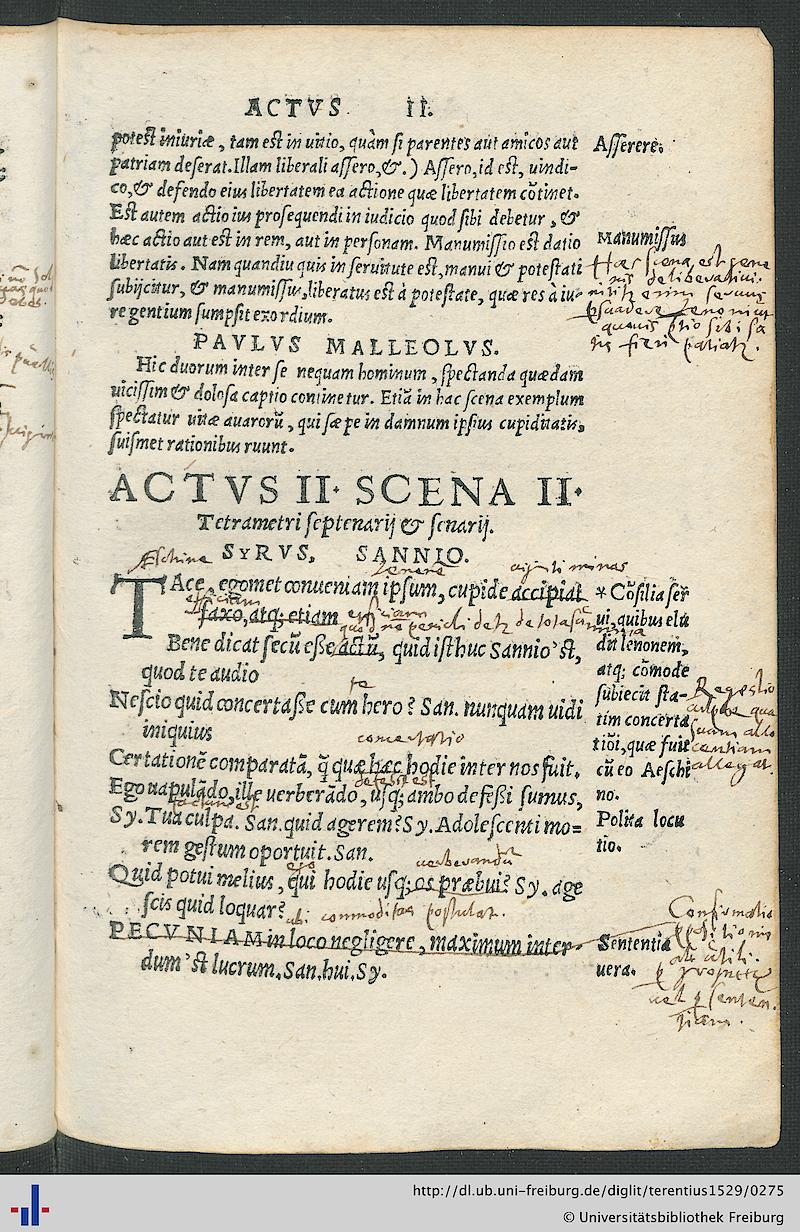 ACTVS II.
potest iniuriæ, tam est in uitio, quàm si parentes aut amicos aut
patriam deserat. Illam liberali assero, &.) Assero, id est, uindi-
co, & defendo eius libertatem ea actione quæ libertatem cõtinet.
Est autem actio ius prosequendi in iudicio quod sibi debetur, &
hæc actio aut est in rem, aut in personam. Manumissio est datio
libertatis. Nam quandiu quis in seruitute est, manui & potestati
subijcitur, & manumissus, liberatus est à potestate, quæ res à iu-
re gentium sumpsit exordium.
Asserere.
Manumissus
Hæc scena est gene
ris deliberativi.
nititr enim servus
suadere Lenoni ut
PAVLVS MALLEOLVS.
Hic duorum inter se nequam hominum, spectanda quædam
uicissim & dolosa captio continetur. Etiã in hac scena exemplum
spectatur uitæ auarorũ, qui sæpe in damnum ipsius cupiditatis,
suismet rationibus ruunt.
ACTVS II. SCENA II.
Tetrametri septenarij & senarij.
SYRVS, SANNIO.
Æschine
Lenonē
uiginti minas
TAce, egomet conueniam ipsum, cupide accipiat
efficiam
faxo, atq; etiam
efficiam
Bene dicat secũ eße actũ, quid isthuc Sannio'st,
quod te audio
te
Nescio quid concertaße cum hero? San. nunquam uidi
iniquius
concertatio
Certationẽ comparatã, q̃ quæ hæc hodie inter nos fuit.
defessus est
Ego uapulãdo, ille uerberãdo, usq; ambo defeßi sumus,
factum est
Sy. Tua culpa. San. quid agerem? Sy. Adolescenti mo=
rem gestum oportuit. San.
ego
uerberandũ
Quid potui melius, qui hodie usq; os præbui? Sy. age
scis quid loquar?
ubi commoditas postulat.
PECVNIAM in loco negligere, maximum inter-
dum'st lucrum. San. hui. Sy.
* Cõsilia ser
ui, quibus elu
dit lenonem,
atq; cõmode
subiecit sta-
tim concerta
tiõi, quæ fuit
cũ eo Aeschi
no.
Polita locu
tio.
Sententia
uera.
Confirmatio
http://dl.ub.uni-freiburg.de/diglit/terentius1529/0275
© Universitätsbibliothek Freiburg